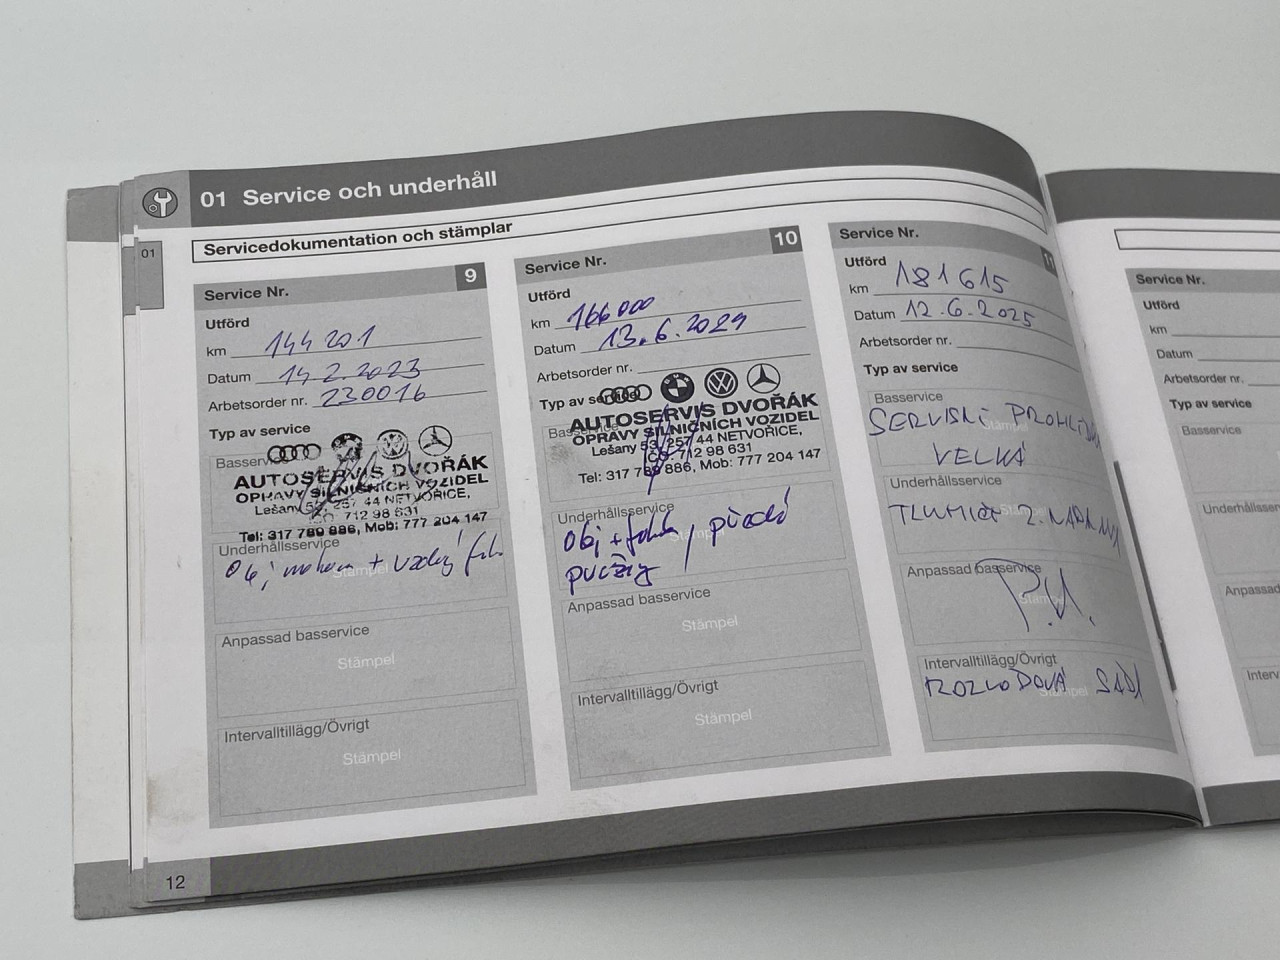 01 Service och underhåll
01
Servicedokumentation och stämplar
Service Nr. 9
Utförd
km 144 201
Datum 14.2.2023
Arbetsorder nr. 230016
Typ av service
Basservice
AUTOSERVIS DVOŘÁK
OPRAVY SILNIČNÍCH VOZIDEL
Lešany 53, 257 44 NETVOŘICE,
IČO: 712 98 631
Tel: 317 789 886, Mob: 777 204 147
Underhållsservice
Stämpel
Anpassad basservice
Stämpel
Intervalltillägg/Övrigt
Stämpel
Service Nr. 10
Utförd
km 166 000
Datum 13.6.2024
Arbetsorder nr.
Typ av service
Basservice
AUTOSERVIS DVOŘÁK
OPRAVY SILNIČNÍCH VOZIDEL
Lešany 53, 257 44 NETVOŘICE,
IČO: 712 98 631
Tel: 317 789 886, Mob: 777 204 147
Underhållsservice
Anpassad basservice
Stämpel
Intervalltillägg/Övrigt
Stämpel
Service Nr. 11
Utförd
km 181615
Datum 12.6.2025
Arbetsorder nr.
Typ av service
Basservice
Stämpel
VELKÁ
Underhållsservice
Anpassad basservice
Stämpel
Intervalltillägg/Övrigt
Stämpel
ROZVODOVÁ SADA
12
Service Nr.
Utförd
km
Datum
Arbetsorder nr.
Typ av service
Basservice